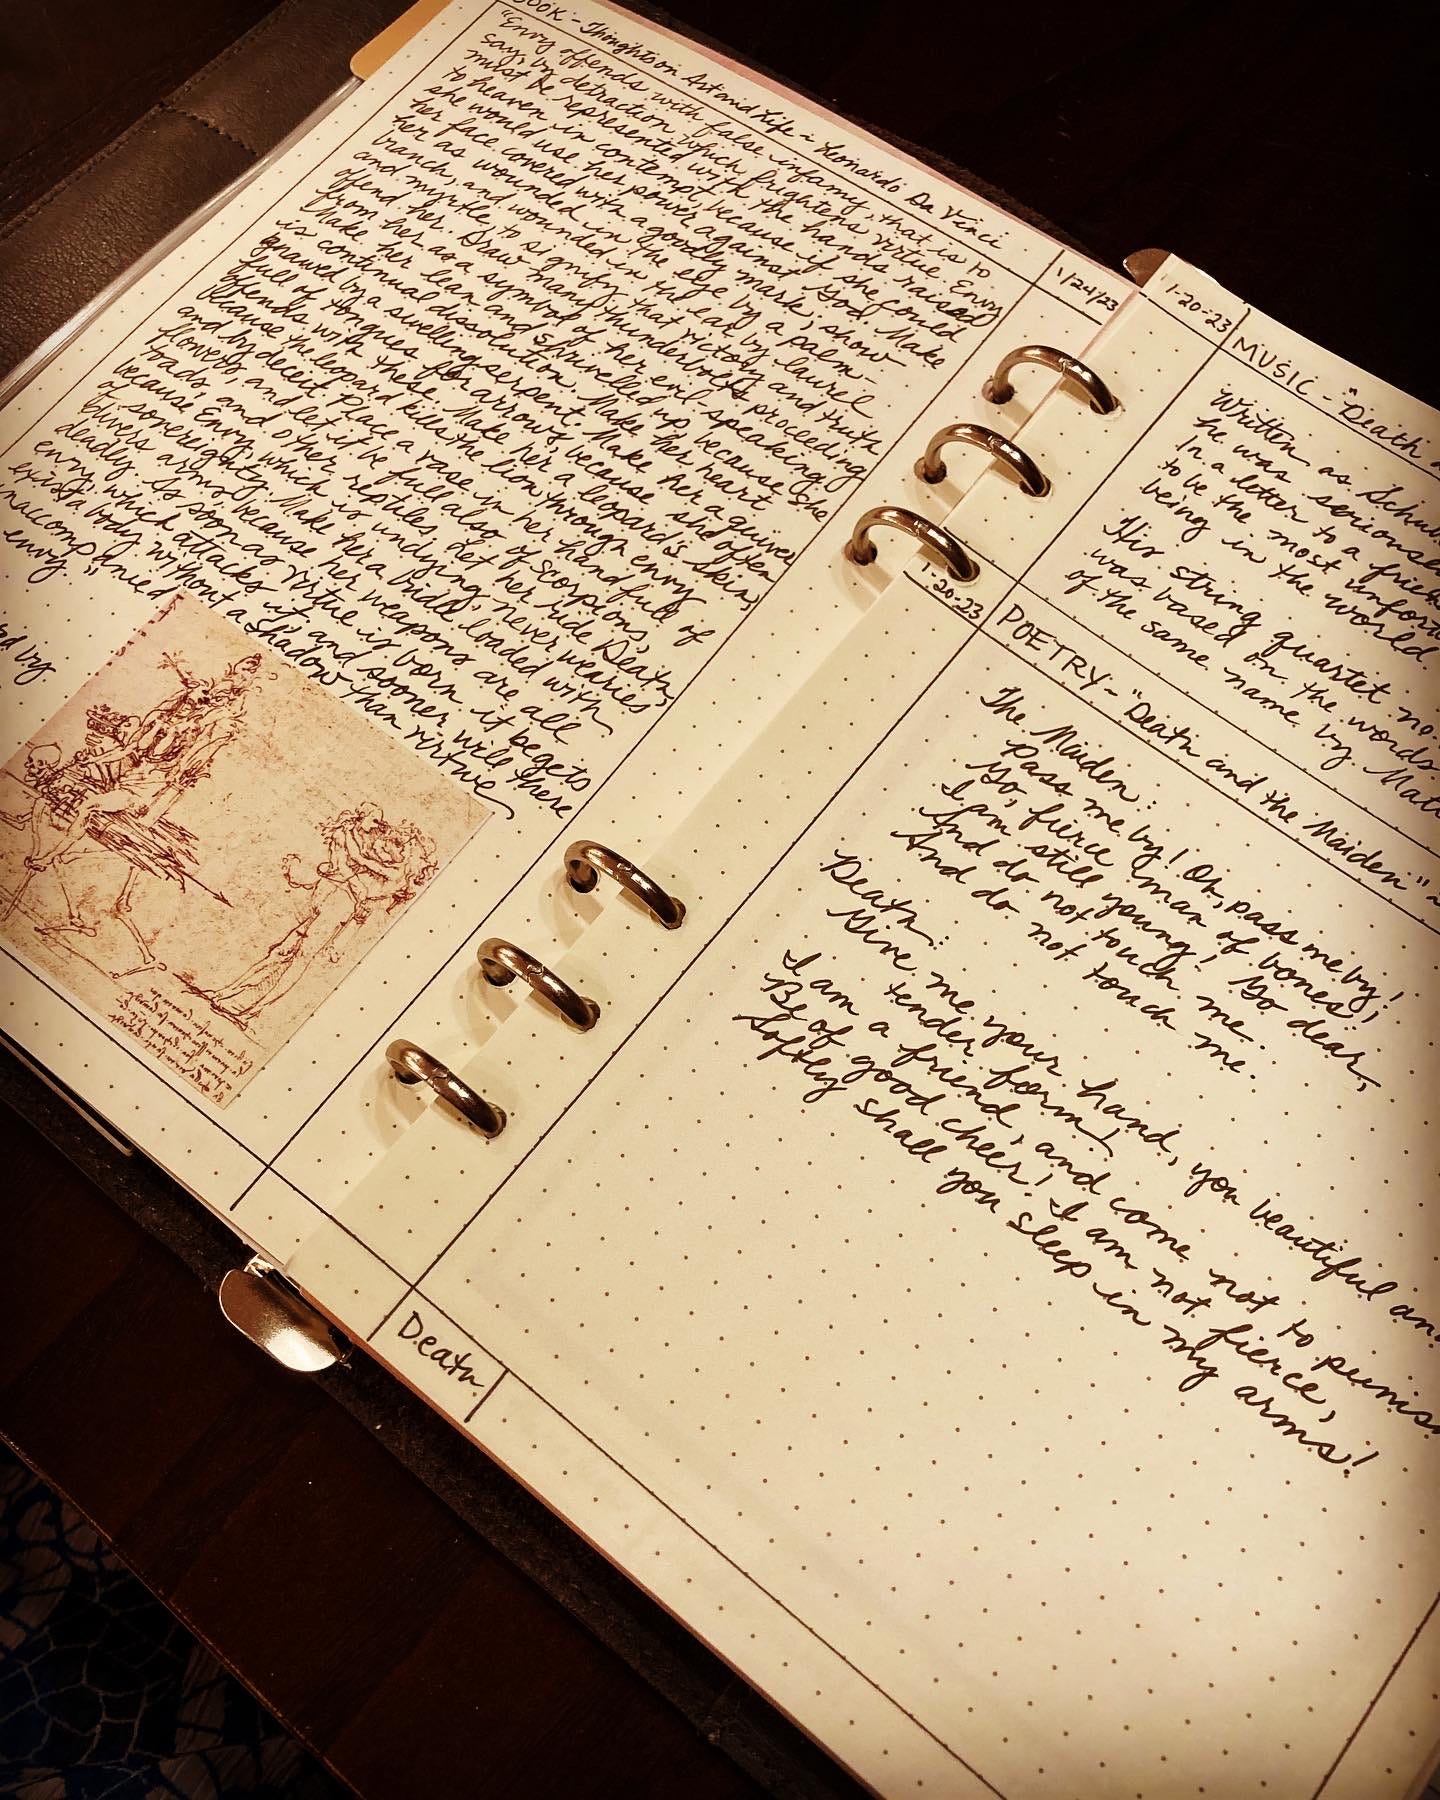 BOOK - Thoughts on Art and Life - Leonardo Da Vinci
1/24/23
"Envy offends with false infamy, that is to
say, by detraction which frightens virtue. Envy
must be represented with the hands raised
to heaven in contempt, because if she could
she would use her power against God. Make
her face covered with a goodly mark; show
her as wounded in the eye by a palm-
branch, and wounded in the ear by laurel
and myrtle, to signify that victory and truth
offend her. Draw many thunderbolts proceeding
from her as a symbol of her evil speaking.
Make her lean and shrivelled up, because she
is in continual dissolution. Make her heart
gnawed by a swelling serpent. Make her a quiver
full of tongues for arrows, because she often
offends with these. Make her a leopard's skin,
because the leopard kills the lion through envy
and by deceit. Place a vase in her hand full of
flowers, and let it be full also of scorpions,
toads, and other reptiles. Let her ride Death,
because Envy, which is undying, never wearies
of sovereignty. Make her a bridle loaded with
divers arms, because her weapons are all
deadly. As soon as virtue is born it begets
envy, which attacks it; and sooner will there
exist a body without a shadow than virtue
unaccompanied
envy."
by
1-20-23
MUSIC - "Death
Written as
he was
In a letter to a
to be the most
being in the world.
His string quartet no.
was based on the words
of the same name by
1-20-23
POETRY - "Death and the Maiden"
The Maiden:
Pass me by! Oh, pass me by!
Go, fierce man of bones!
I am still young! Go dear,
And do not touch me.
And do not touch me.
Death:
Give me your hand, you beautiful
tender form!
I am a friend, and come not to
Be of good cheer! I am not fierce,
Softly shall you sleep in my arms!
Death